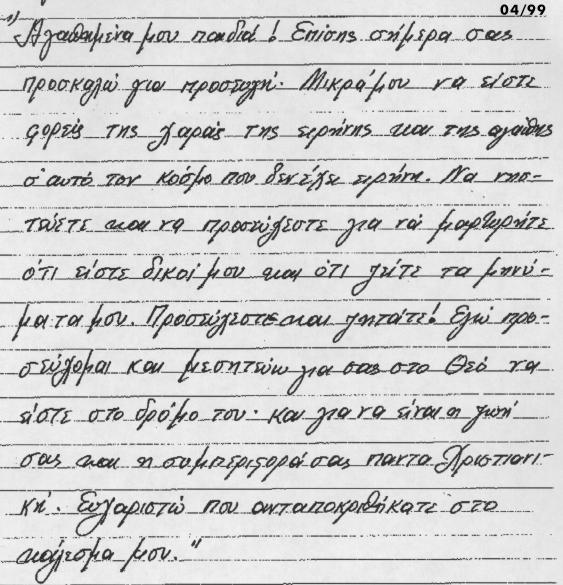 04/99
"Αγαπημένα μου παιδιά! Επίσης σήμερα σας
προσκαλώ για προσευχή. Μικρά μου να είστε
φορείς της χαράς της ειρήνης και της αγάπης
σ' αυτό τον κόσμο που δεν έχει ειρήνη. Να νησ-
τεύετε και να προσεύχεστε για να μαρτυρήτε
ότι είστε δικοί μου και ότι ζείτε τα μηνύ-
ματα μου. Προσεύχεστε και ζητάτε! Εγώ προ-
σεύχομαι και μεσητεύω για σας στο Θεό να
είστε στο δρόμο του. και για να είναι η ζωή
σας και η συμπεριφορά σας παντα Χριστιανι-
κή. Ευχαριστώ που ανταποκριθήκατε στο
κάλεσμα μου."